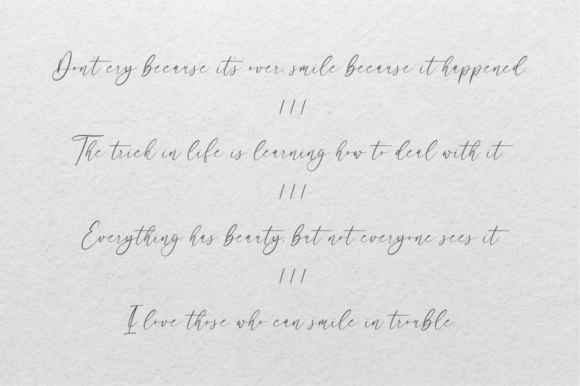 Don't cry because it's over, smile because it happened.
///
The trick in life is learning how to deal with it.
///
Everything has beauty, but not everyone sees it.
///
I love those who can smile in trouble.